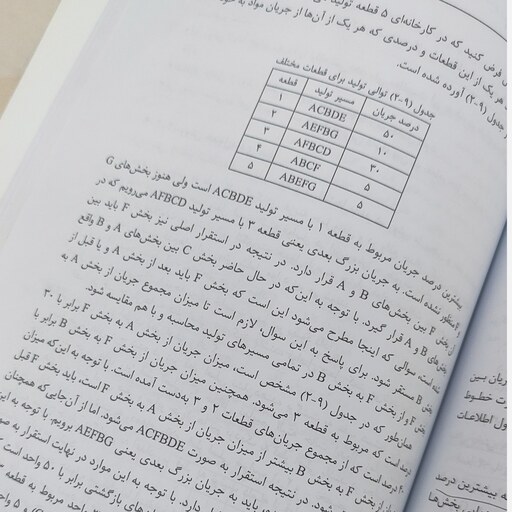 فرض کنید که در کارخانه‌ای ۵ قطعه تولید
هر یک از این قطعات و درصدی که هر یک از آن‌ها از جریان مواد به خود
جدول (۹-۲) آورده شده است.
جدول (۹-۲) توالی تولید برای قطعات مختلف
قطعه مسیر تولید درصد جریان
۱ ACBDE ۵۰
۲ AEFBG ۱۰
۳ AFBCD ۳۰
۴ ABCF ۵
۵ ABEFG ۵
بیشترین درصد جریان مربوط به قطعه ۱ با مسیر تولید ACBDE است ولی هنوز بخش‌های G
و F منظور نشده است. به جریان بزرگ بعدی یعنی قطعه ۳ با مسیر تولید AFBCD می‌رویم که در
آن بخش F بین بخش‌های B و A قرار دارد. در نتیجه در استقرار اصلی نیز بخش F باید بین
بخش‌های B و A قرار گیرد. با توجه به این که در حال حاضر بخش C بین بخش‌های A و B واقع
شده است، سوالی که اینجا مطرح می‌شود این است که بخش F باید بعد از بخش A و یا قبل از
بخش B مستقر شود. برای پاسخ به این سوال، لازم است تا میزان مجموع جریان از بخش A به
بخش F و از بخش F به بخش B در تمامی مسیرهای تولید محاسبه و با هم مقایسه شود.
همان‌طور که در جدول (۹-۲) مشخص است، میزان جریان از بخش A به بخش F برابر با ۳۰
درصد است که مربوط به قطعه ۳ می‌شود. همچنین میزان جریان از بخش F به بخش B برابر با
۴۰ درصد است که از مجموع جریان‌های قطعات ۲ و ۳ به‌دست آمده است. با توجه به این‌که میزان
جریان از بخش F به بخش B بیشتر از میزان جریان از بخش A به بخش F است، باید بخش F قبل
شود. در نتیجه استقرار به صورت ACFBDE می‌شود. اما از آن‌جایی که همچنان
باید به جریان بزرگ بعدی یعنی AEFBG برویم. با توجه به این
دارد. با توجه به این موارد در نهایت استقرار به صورت
های بازگشتی برابر با ۵۰ واحد است که
واحد مربوط به قطعه
و ۵ واحد
جریان بین
خطوط
اطلاعات
بیشترین درصد
بخش‌ها